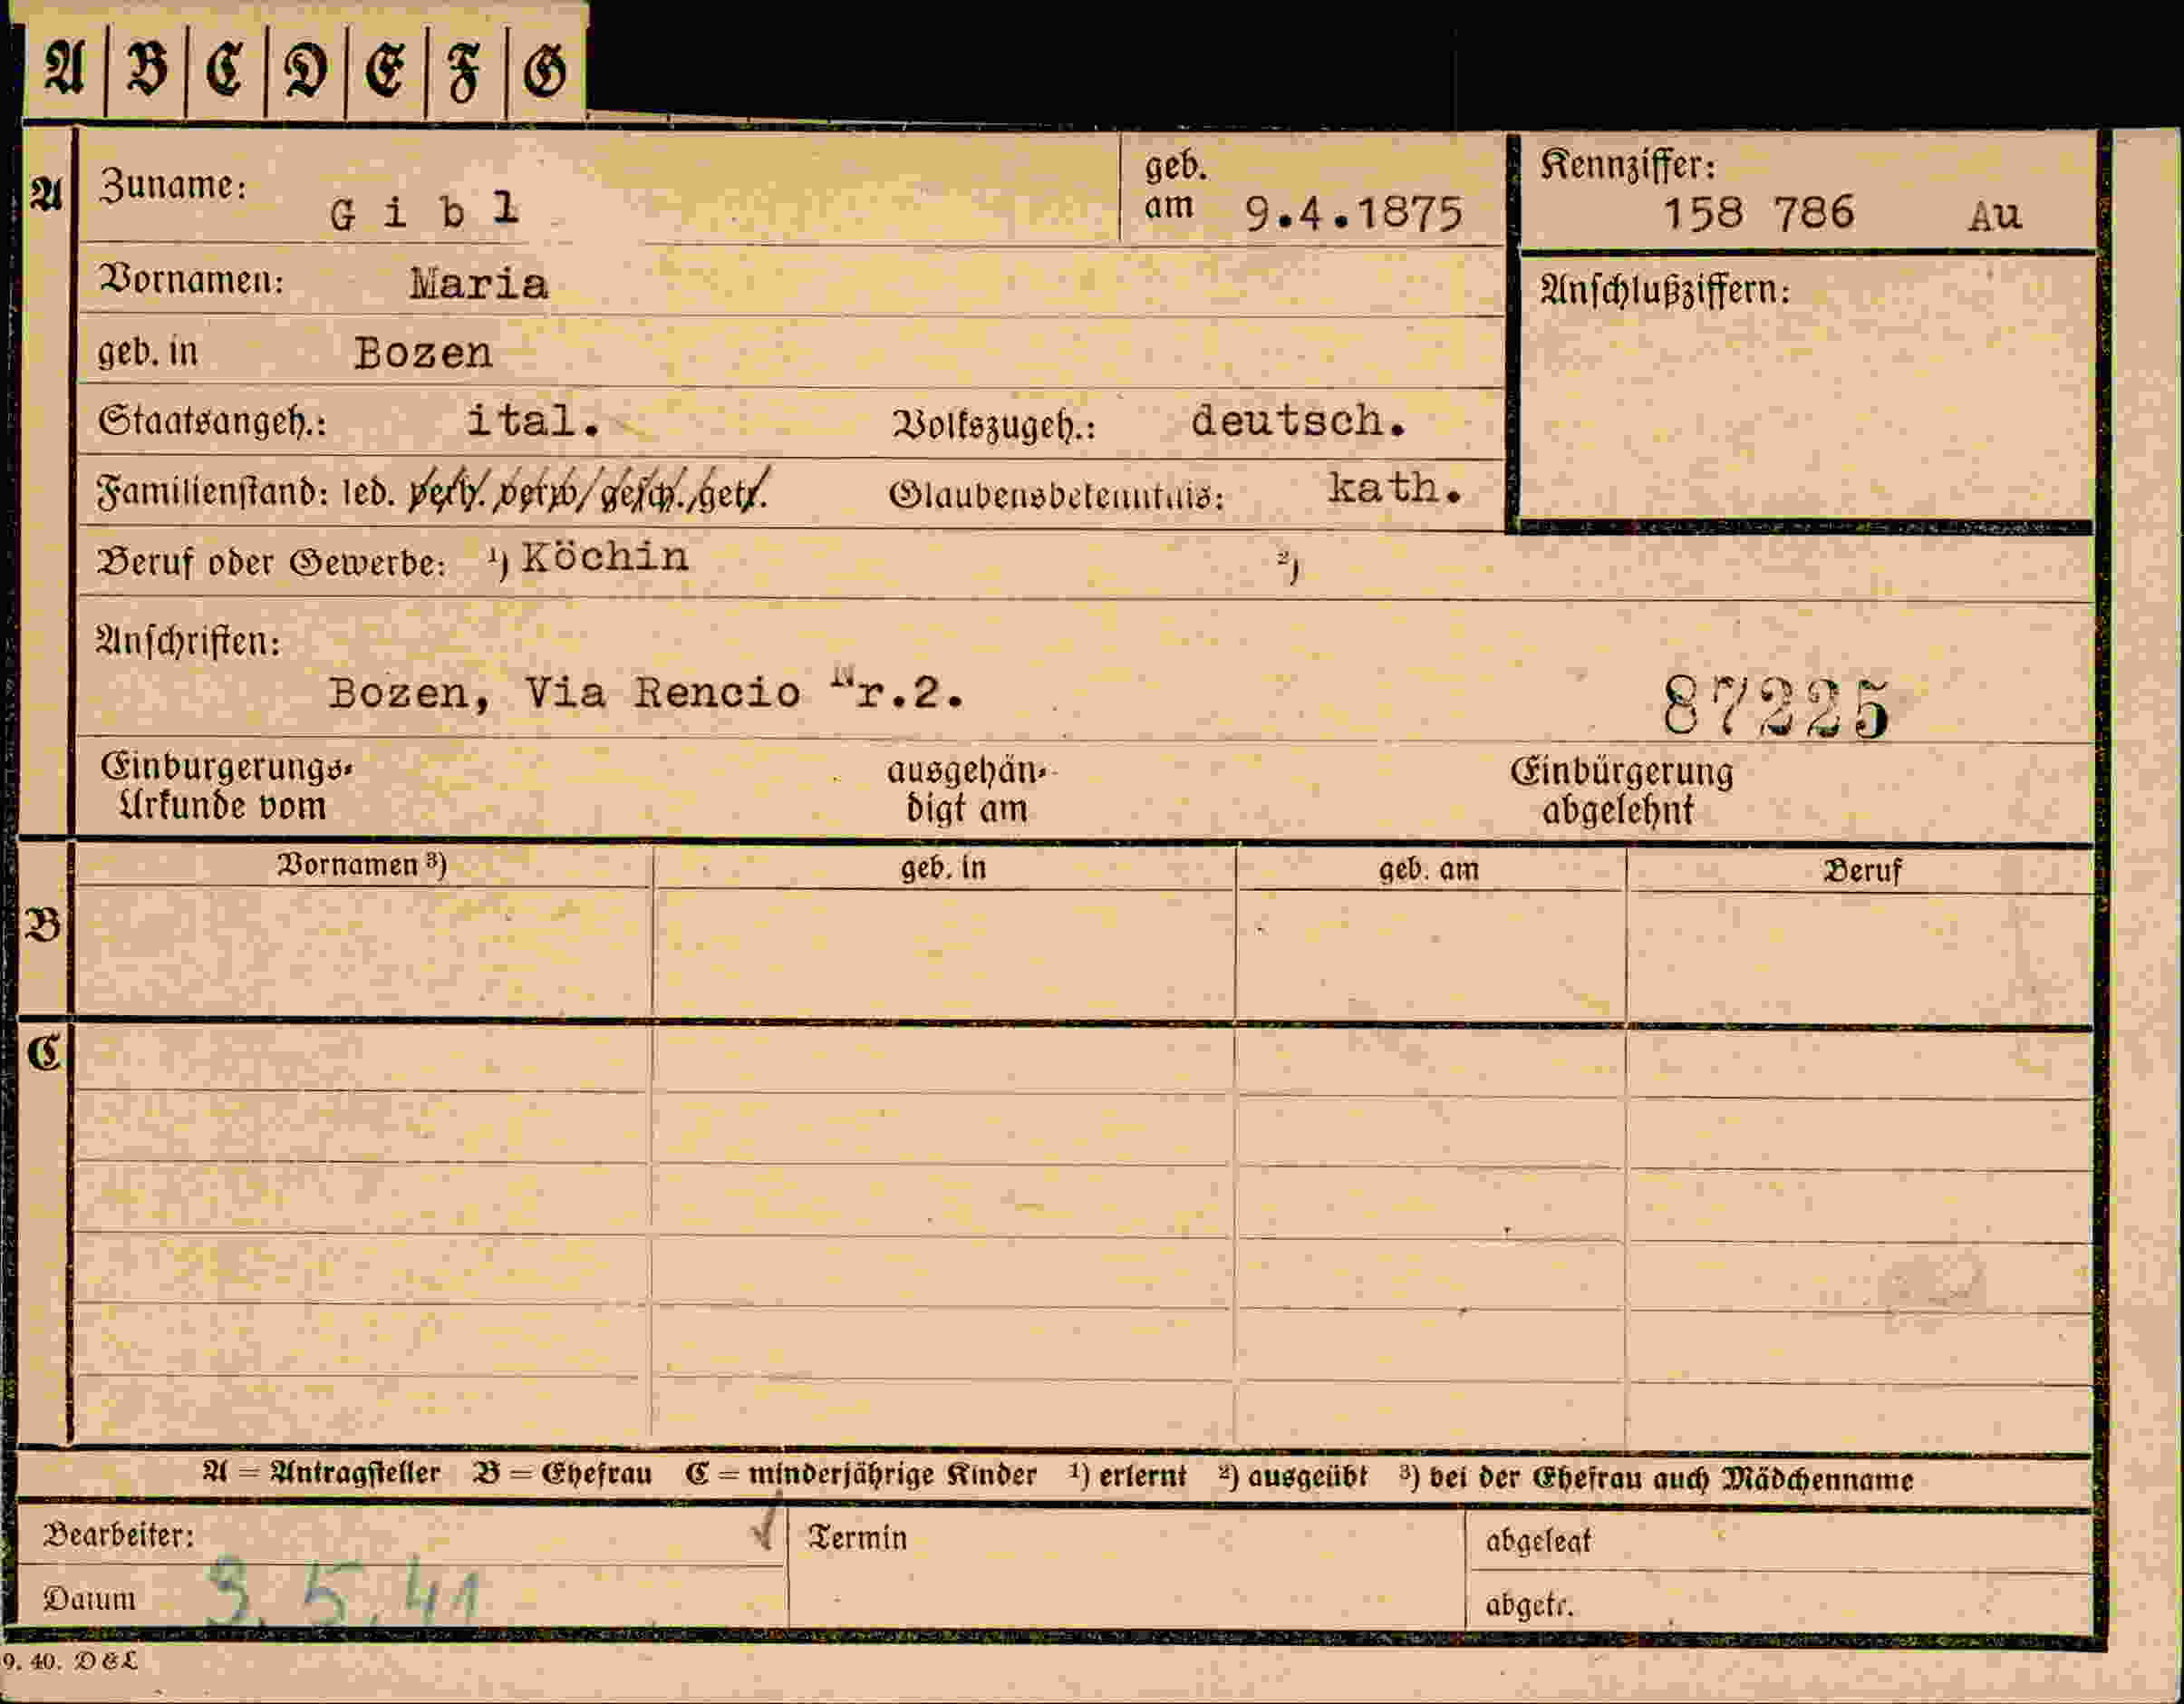 A | B | C | D | E | F | G
A Zuname: Gibl geb. am 9.4.1875 Kennziffer: 158 786 Au
Vornamen: Maria Anschlußziffern:
geb. in Bozen
Staatsangeh.: ital. Volkszugeh.: deutsch.
Familienstand: led. verh. verw. gesch. getr. Glaubensbekenntnis: kath.
Beruf oder Gewerbe: ¹) Köchin ²)
Anschriften:
Bozen, Via Rencio Nr.2. 87225
Einbürgerungs- ausgehän- Einbürgerung
Urkunde vom digt am abgelehnt
Vornamen ³) geb. in geb. am Beruf
B
C
A = Antragsteller B = Ehefrau C = minderjährige Kinder ¹) erlernt ²) ausgeübt ³) bei der Ehefrau auch Mädchenname
Bearbeiter: Termin abgelegt
Datum 9.5.41 abgetr.
9. 40. D&L